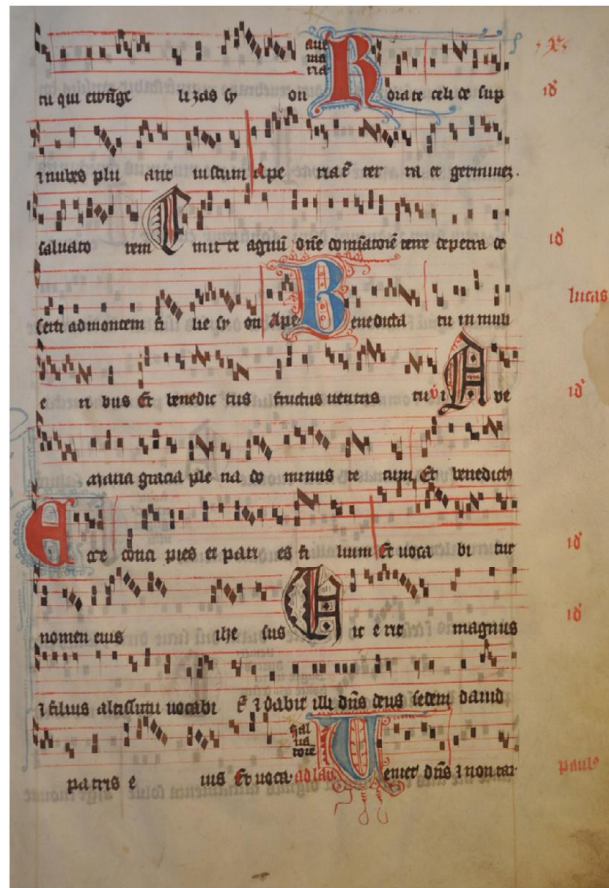 tu qui ewãge lizas sy on aue ma ria Rorate celi de sup
⁊ nubes plu ant iustum Ape riat̃ ter ra et germinet
saluato rem Emitte agnũ dñe dominatorẽ terre de petra de
serti ad montem fi lie sy on Ape Benedicta tu in muli
e ri bus Et benedic tus fructus uentris tui Ave
maria gracia ple na do minus te cum Et benedict
Ecce conci pies et pari es fi lium Et uoca bi tur
nomen eius ihe sus Hic e rit magnus
⁊ filius altissimi uocabi t̃ ⁊ dabit illi dñs deus sedem dauid
patris e ius Et uoca ad lau Sal ua tore Ueniet dñs ⁊ non tar
lucas
paulo